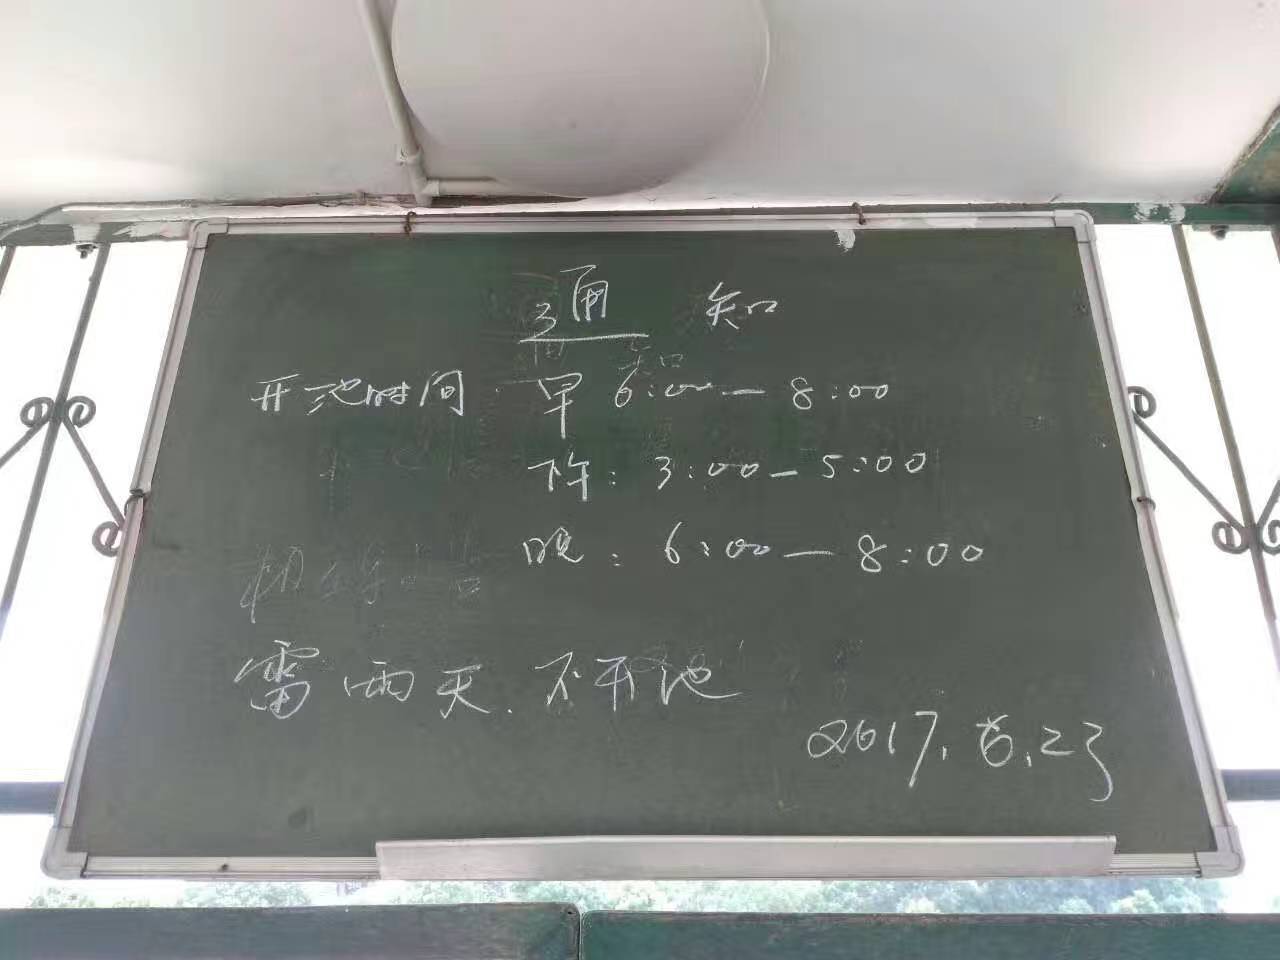 通 知
开池时间 早 6:00—8:00
下午: 3:00—5:00
晚: 6:00—8:00
雷雨天.不开池
2017.6.23